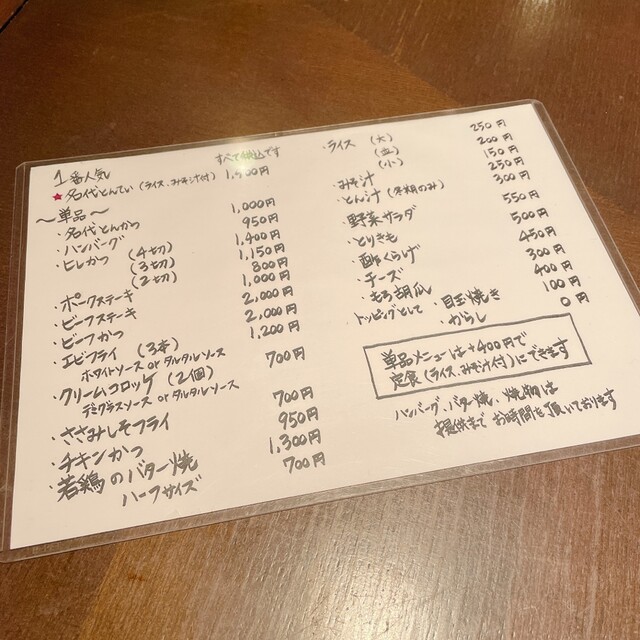 すべて税込です
1番人気
★名代とんてい(ライス、みそ汁付) 1,400円
〜単品〜
・名代とんかつ 1,000円
・ハンバーグ 950円
・ヒレかつ (4切) 1,400円
(3切) 1,150円
(2切) 800円
・ポークステーキ 1,000円
・ビーフステーキ 2,000円
・ビーフかつ 2,000円
・エビフライ (3本) 1,200円
ホワイトソース or タルタルソース
・クリームコロッケ (2個) 700円
デミグラスソース or タルタルソース
・ささみしそフライ 700円
・チキンかつ 950円
・若鶏のバター焼 1,300円
ハーフサイズ 700円
・ライス (大) 250円
(並) 200円
(小) 150円
・みそ汁 250円
・とん汁 (冬期のみ) 300円
・野菜サラダ 550円
・とりきも 500円
・酢くらげ 450円
・チーズ 300円
・もろ胡瓜 400円
トッピングとして ・目玉焼き 100円
・からし 0円
単品メニューは+400円で
定食(ライス、みそ汁付)にできます
ハンバーグ、バター焼、焼物は
提供まで お時間を頂いております